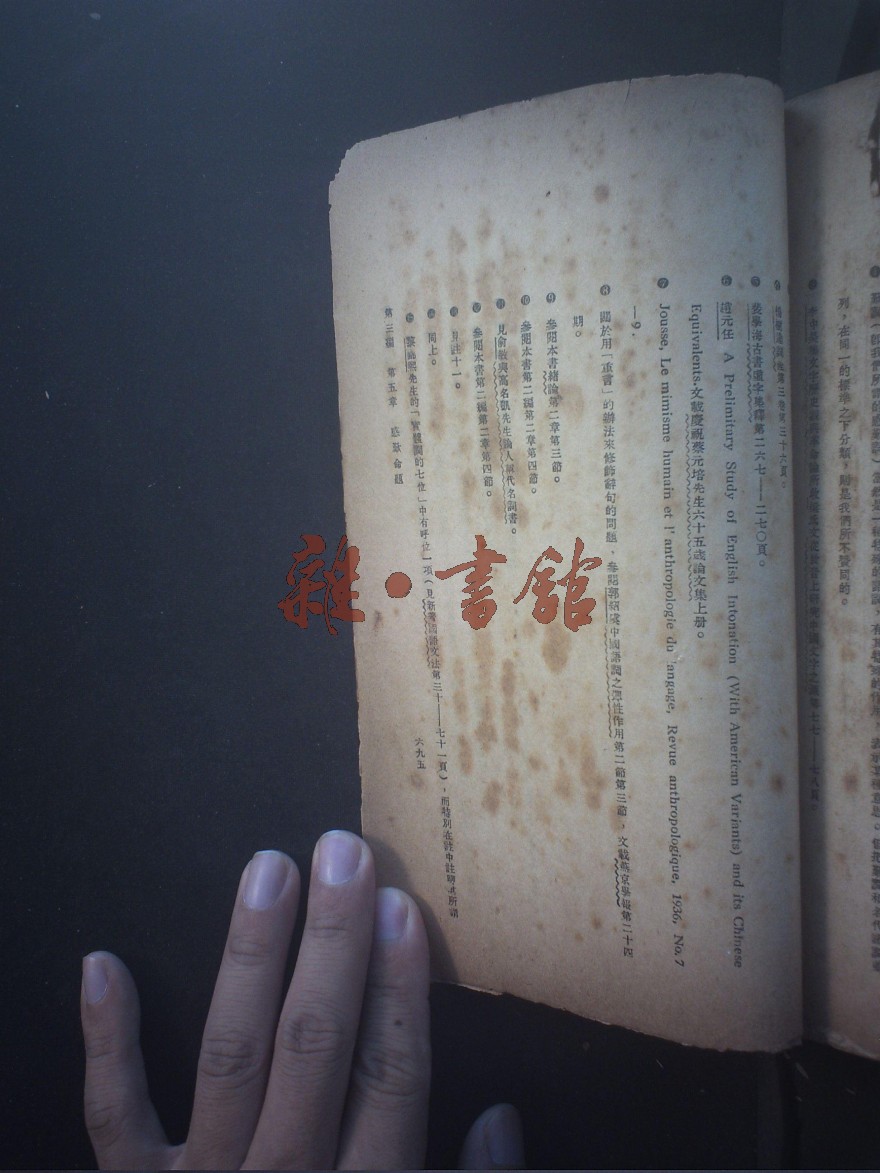 列，在同一的標準之下分類，則是我們所不贊同的。
裴學海古書虛字集釋第二六七——二七〇頁。
趙元任 A Prelimitary Study of English Intonation (With American Variants) and its Chinese
Equivalents，文載慶祝蔡元培先生六十五歲論文集上册。
❼ Jousse, Le mimisme humain et l'anthropologie du 'anguage, Revue anthropologique, 1936, No. 7
—9.
❽ 關於用「重言」的辦法來修飾辭句的問題，參閱郭紹虞中國語詞之彈性作用第二節第三節，文載燕京學報第二十四
期。
❾ 參閱本書緒論第二章第三節。
❿ 參閱本書第二編第二章第四節。
⓫ 見俞敏與高名凱先生論人稱代名詞書。
⓬ 參閱本書第二編第二章第四節。
⓭ 見註十一。
⓮ 同上。
⓯ 黎錦熙先生的「實體詞的七位」中有呼位一項（見新著國語文法第三十——七十一頁），而特別在註中註明其所謂
第三編 第五章 感歎命題
六九五
雜·書館